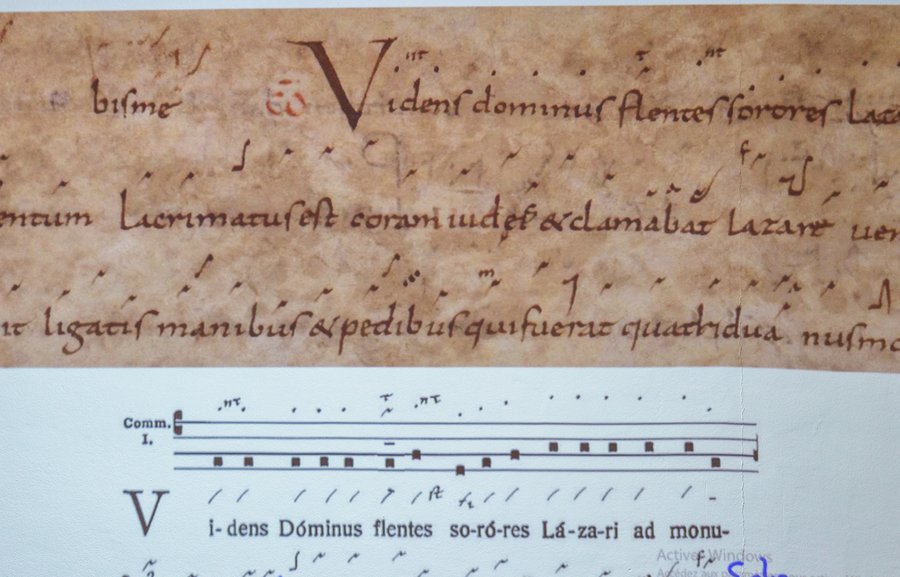 bisme CŌ Videns dominus flentes sorores Laza
entum lacrimatus est coram iudęis & clamabat lazare ven
it ligatis manibus & pedibus qui fuerat quatriduanus mo
Comm.
I.
V i-dens Dóminus flentes so-ró-res Lá-za-ri ad monu-
Activer Windows
Accédez aux